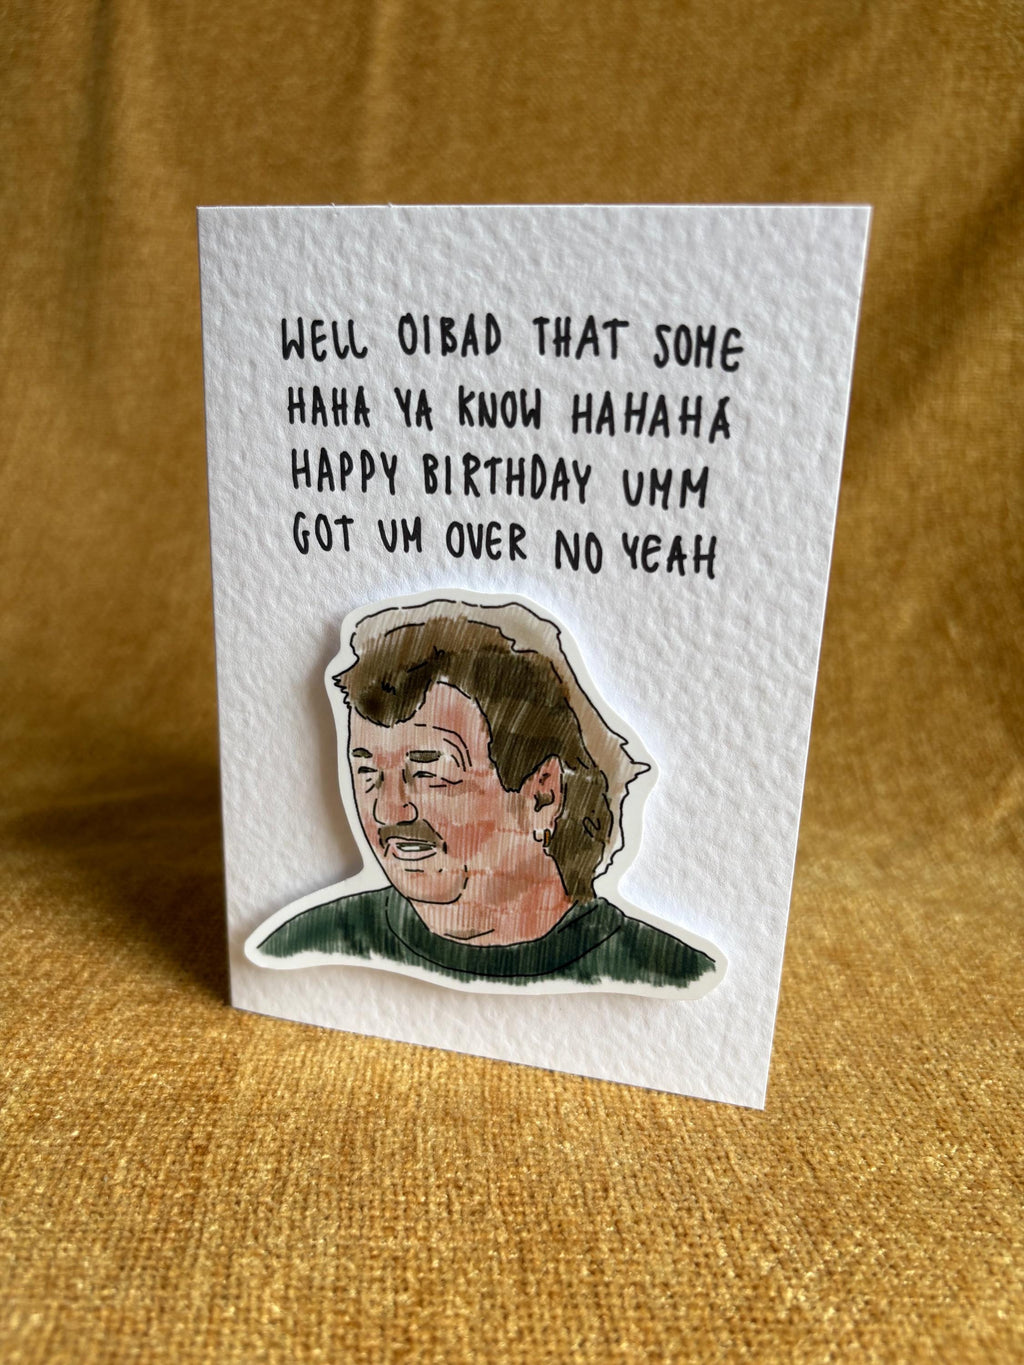 WELL OIBAD THAT SOME
HAHA YA KNOW HAHAHA
HAPPY BIRTHDAY UMM
GOT UM OVER NO YEAH